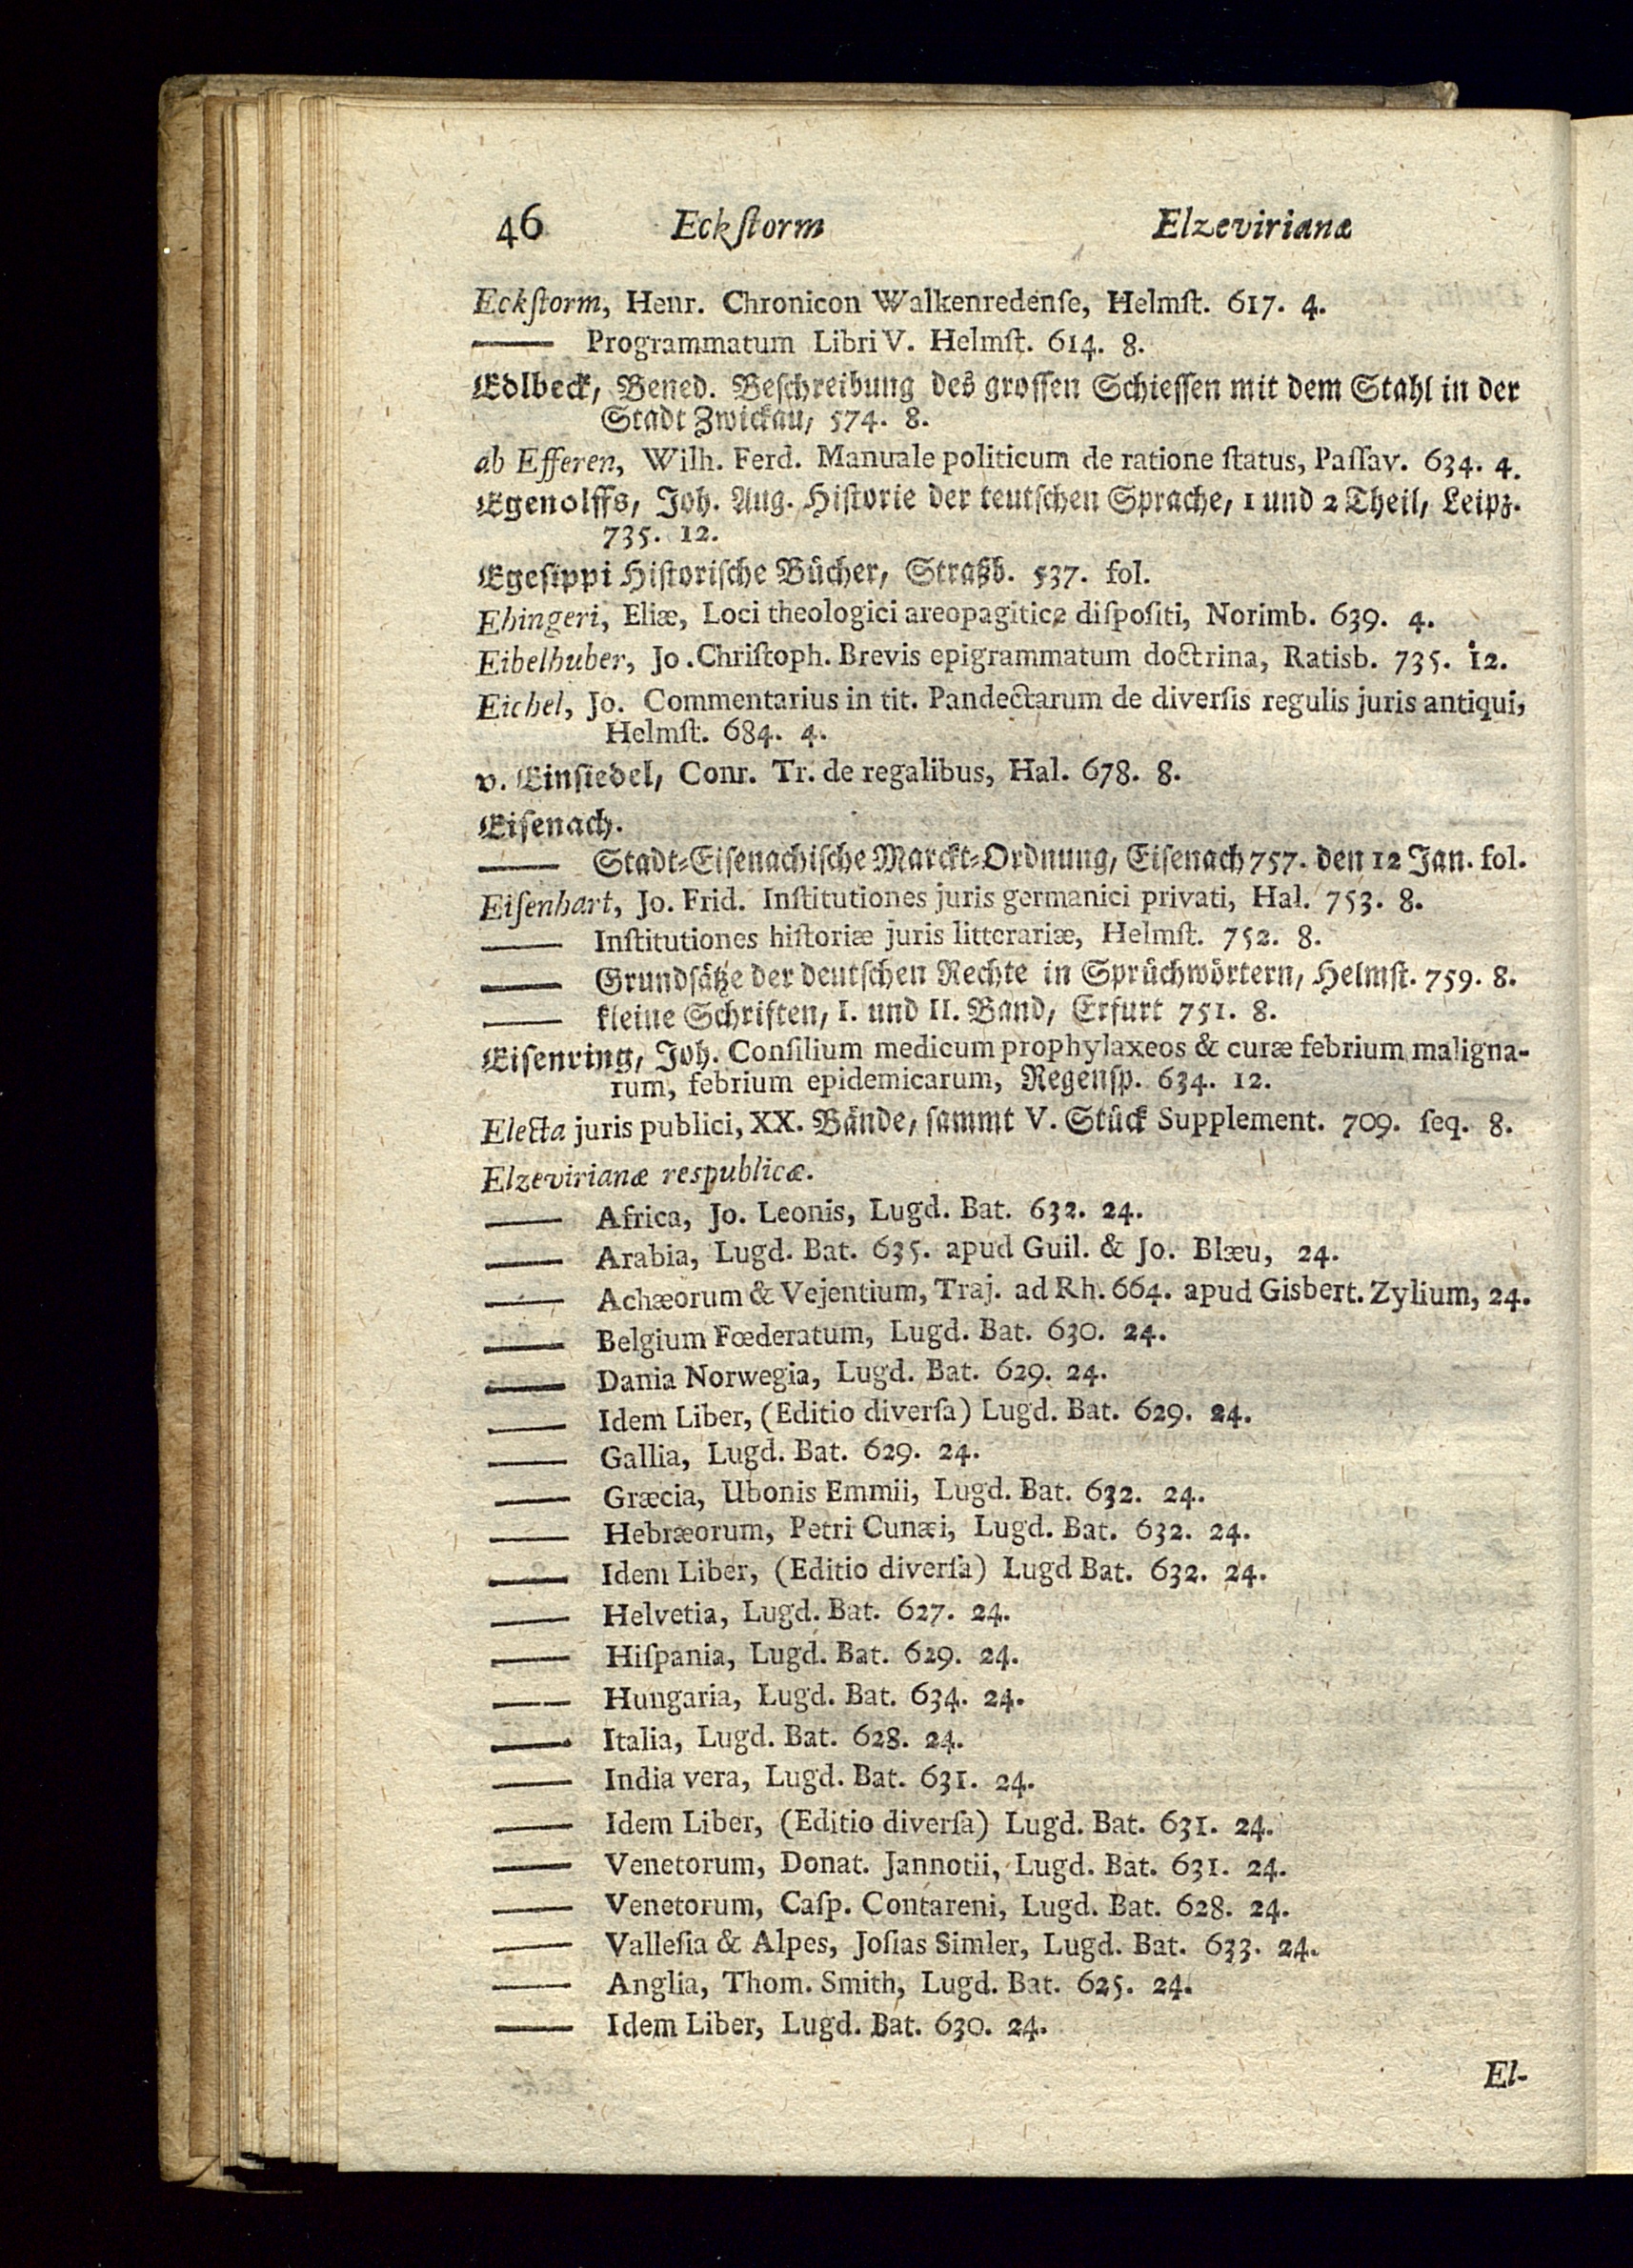 46 Eckſtorm Elzevirianæ
Eckſtorm, Henr. Chronicon Walkenredenſe, Helmſt. 617. 4.
—— Programmatum Libri V. Helmſt. 614. 8.
Edlbeck, Bened. Beſchreibung des groſſen Schieſſen mit dem Stahl in der
Stadt Zwickau, 574. 8.
ab Efferen, Wilh. Ferd. Manuale politicum de ratione ſtatus, Paſſav. 634. 4.
Egenolffs, Joh. Aug. Hiſtorie der teutſchen Sprache, 1 und 2 Theil, Leipz.
735. 12.
Egeſippi Hiſtoriſche Bücher, Straßb. 537. fol.
Ehingeri, Eliæ, Loci theologici areopagitice diſpoſiti, Norimb. 639. 4.
Eibelhuber, Jo. Chriſtoph. Brevis epigrammatum doctrina, Ratisb. 735. 12.
Eichel, Jo. Commentarius in tit. Pandectarum de diverſis regulis juris antiqui,
Helmſt. 684. 4.
v. Einſiedel, Conr. Tr. de regalibus, Hal. 678. 8.
Eiſenach.
—— Stadt-Eiſenachiſche Marckt-Ordnung, Eiſenach 757. den 12 Jan. fol.
Eiſenhart, Jo. Frid. Inſtitutiones juris germanici privati, Hal. 753. 8.
—— Inſtitutiones hiſtoriæ juris litterariæ, Helmſt. 752. 8.
—— Grundſätze der deutſchen Rechte in Sprüchwörtern, Helmſt. 759. 8.
—— kleine Schriften, I. und II. Band, Erfurt 751. 8.
Eiſenring, Joh. Conſilium medicum prophylaxeos & curæ febrium maligna-
rum, febrium epidemicarum, Regenſp. 634. 12.
Electa juris publici, XX. Bände, ſammt V. Stück Supplement. 709. ſeq. 8.
Elzevirianæ respublicæ.
—— Africa, Jo. Leonis, Lugd. Bat. 632. 24.
—— Arabia, Lugd. Bat. 635. apud Guil. & Jo. Blæu, 24.
—— Achæorum & Vejentium, Traj. ad Rh. 664. apud Gisbert. Zylium, 24.
—— Belgium Fœderatum, Lugd. Bat. 630. 24.
—— Dania Norwegia, Lugd. Bat. 629. 24.
—— Idem Liber, (Editio diverſa) Lugd. Bat. 629. 24.
—— Gallia, Lugd. Bat. 629. 24.
—— Græcia, Ubonis Emmii, Lugd. Bat. 632. 24.
—— Hebræorum, Petri Cunæi, Lugd. Bat. 632. 24.
—— Idem Liber, (Editio diverſa) Lugd Bat. 632. 24.
—— Helvetia, Lugd. Bat. 627. 24.
—— Hiſpania, Lugd. Bat. 629. 24.
—— Hungaria, Lugd. Bat. 634. 24.
—— Italia, Lugd. Bat. 628. 24.
—— India vera, Lugd. Bat. 631. 24.
—— Idem Liber, (Editio diverſa) Lugd. Bat. 631. 24.
—— Venetorum, Donat. Jannotii, Lugd. Bat. 631. 24.
—— Venetorum, Caſp. Contareni, Lugd. Bat. 628. 24.
—— Valleſia & Alpes, Joſias Simler, Lugd. Bat. 633. 24.
—— Anglia, Thom. Smith, Lugd. Bat. 625. 24.
—— Idem Liber, Lugd. Bat. 630. 24.
El-